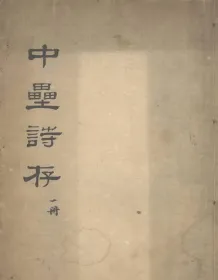 中壘詩存
一冊